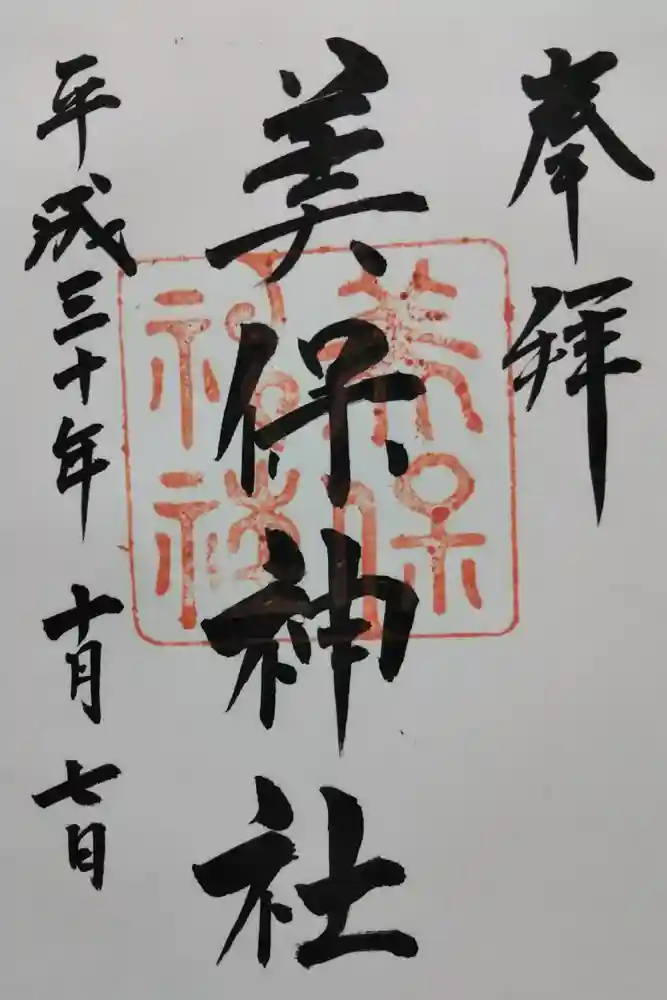 奉拝
美保神社
美保神社
平成三十年十月七日